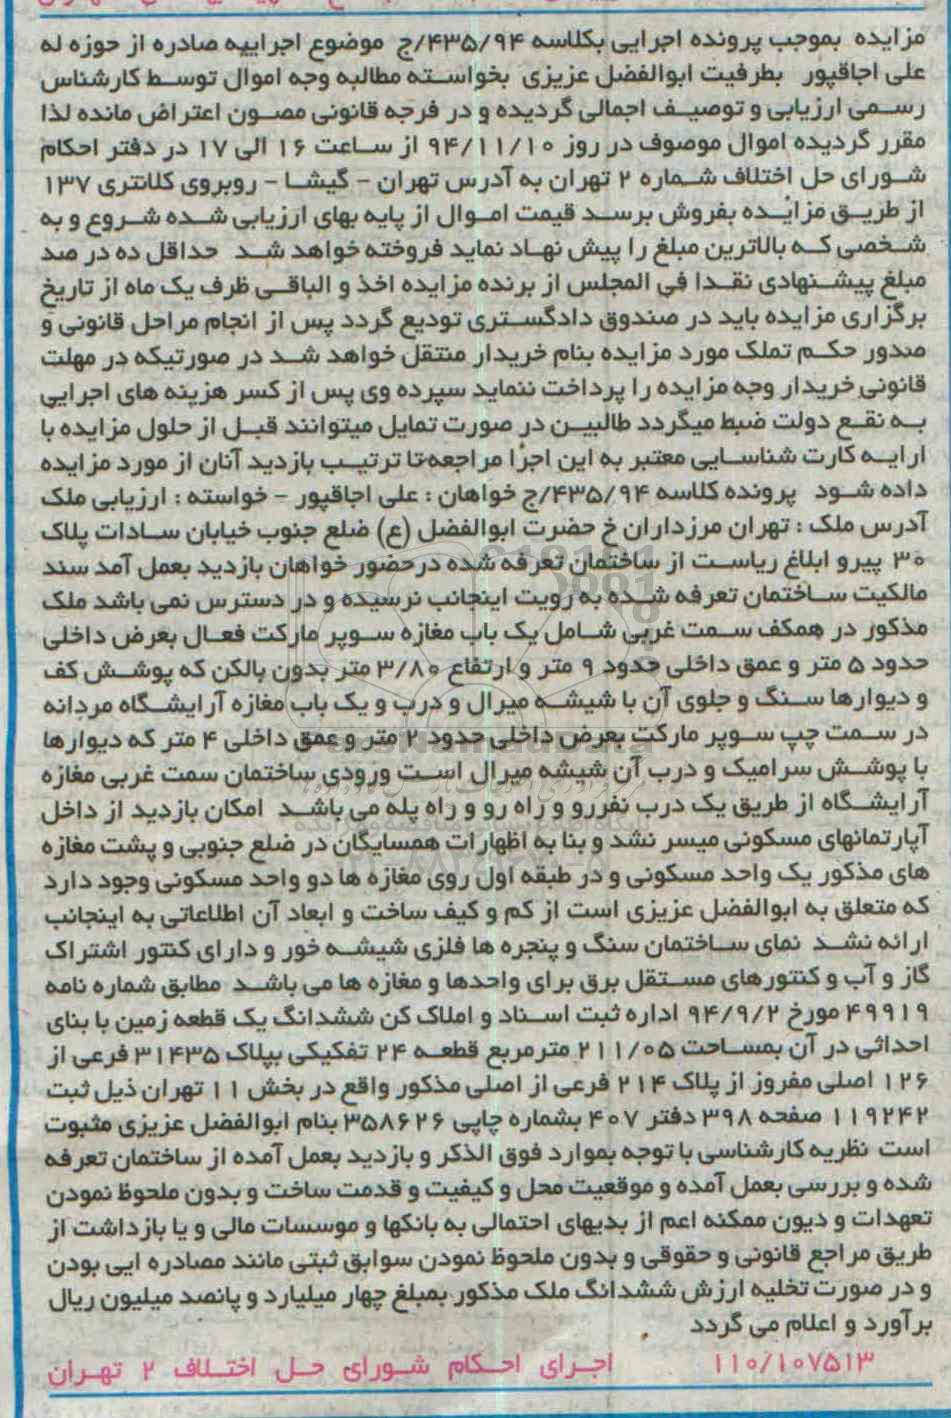 مزایده بموجب پرونده اجرایی بکلاسه ۴۳۵/۹۴/ج موضوع اجراییه صادره از حوزه له
علی اجاقپور بطرفیت ابوالفضل عزیزی بخواسته مطالبه وجه اموال توسط کارشناس
رسمی ارزیابی و توصیف اجمالی گردیده و در فرجه قانونی مصون اعتراض مانده لذا
مقرر گردیده اموال موصوف در روز ۹۴/۱۱/۱۰ از ساعت ۱۶ الی ۱۷ در دفتر احکام
شورای حل اختلاف شماره ۲ تهران به آدرس تهران - گیشا - روبروی کلانتری ۱۳۷
از طریق مزایده بفروش برسد قیمت اموال از پایه بهای ارزیابی شده شروع و به
شخصی که بالاترین مبلغ را پیش نهاد نماید فروخته خواهد شد حداقل ده در صد
مبلغ پیشنهادی نقدا فی المجلس از برنده مزایده اخذ و الباقی ظرف یک ماه از تاریخ
برگزاری مزایده باید در صندوق دادگستری تودیع گردد پس از انجام مراحل قانونی و
صدور حکم تملک مورد مزایده بنام خریدار منتقل خواهد شد در صورتیکه در مهلت
قانونی خریدار وجه مزایده را پرداخت ننماید سپرده وی پس از کسر هزینه های اجرایی
به نقع دولت ضبط میگردد طالبین در صورت تمایل میتوانند قبل از حلول مزایده با
ارایه کارت شناسایی معتبر به این اجرا مراجعه تا ترتیب بازدید آنان از مورد مزایده
داده شود پرونده کلاسه ۴۳۵/۹۴/ج خواهان : علی اجاقپور - خواسته : ارزیابی ملک
آدرس ملک : تهران مرزداران خ حضرت ابوالفضل (ع) ضلع جنوب خیابان سادات پلاک
۳۰ پیرو ابلاغ ریاست از ساختمان تعرفه شده درحضور خواهان بازدید بعمل آمد سند
مالکیت ساختمان تعرفه شده به رویت اینجانب نرسیده و در دسترس نمی باشد ملک
مذکور در همکف سمت غربی شامل یک باب مغازه سوپر مارکت فعال بعرض داخلی
حدود ۵ متر و عمق داخلی حدود ۹ متر و ارتفاع ۳/۸۰ متر بدون بالکن که پوشش کف
و دیوارها سنگ و جلوی آن با شیشه میرال و درب و یک باب مغازه آرایشگاه مردانه
در سمت چپ سوپر مارکت بعرض داخلی حدود ۲ متر و عمق داخلی ۴ متر که دیوارها
با پوشش سرامیک و درب آن شیشه میرال است ورودی ساختمان سمت غربی مغازه
آرایشگاه از طریق یک درب نفررو و راه رو و راه پله می باشد امکان بازدید از داخل
آپارتمانهای مسکونی میسر نشد و بنا به اظهارات همسایگان در ضلع جنوبی و پشت مغازه
های مذکور یک واحد مسکونی و در طبقه اول روی مغازه ها دو واحد مسکونی وجود دارد
که متعلق به ابوالفضل عزیزی است از کم و کیف ساخت و ابعاد آن اطلاعاتی به اینجانب
ارائه نشد نمای ساختمان سنگ و پنجره ها فلزی شیشه خور و دارای کنتور اشتراک
گاز و آب و کنتورهای مستقل برق برای واحدها و مغازه ها می باشد مطابق شماره نامه
۴۹۹۱۹ مورخ ۹۴/۹/۲ اداره ثبت اسناد و املاک کن ششدانگ یک قطعه زمین با بنای
احداثی در آن بمساحت ۲۱۱/۰۵ مترمربع قطعه ۲۴ تفکیکی بپلاک ۳۱۴۳۵ فرعی از
۱۲۶ اصلی مفروز از پلاک ۲۱۴ فرعی از اصلی مذکور واقع در بخش ۱۱ تهران ذیل ثبت
۱۱۹۲۴۲ صفحه ۳۹۸ دفتر ۴۰۷ بشماره چاپی ۳۵۸۶۲۶ بنام ابوالفضل عزیزی مثبوت
است نظریه کارشناسی با توجه بموارد فوق الذکر و بازدید بعمل آمده از ساختمان تعرفه
شده و بررسی بعمل آمده و موقعیت محل و کیفیت و قدمت ساخت و بدون ملحوظ نمودن
تعهدات و دیون ممکنه اعم از بدیهای احتمالی به بانکها و موسسات مالی و یا بازداشت از
طریق مراجع قانونی و حقوقی و بدون ملحوظ نمودن سوابق ثبتی مانند مصادره ایی بودن
و در صورت تخلیه ارزش ششدانگ ملک مذکور بمبلغ چهار میلیارد و پانصد میلیون ریال
برآورد و اعلام می گردد
۱۱۰/۱۰۷۵۱۳ اجرای احکام شورای حل اختلاف ۲ تهران